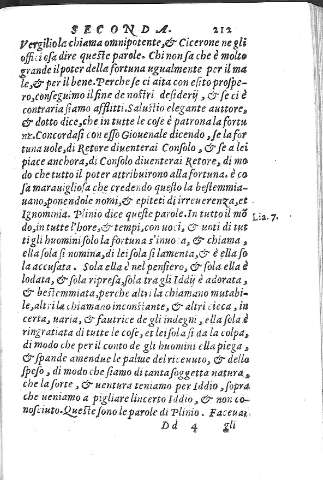 SECONDA. 212
Vergilio la chiama omnipotente, & Cicerone ne gli
offici osa dire queste parole. Chi non sa che è molto
grande il poter della fortuna ugualmente per il ma
le, & per il bene. Perche se ci aita con esito prospe-
ro, conseguimo il fine de nostri desiderij, & se ci è
contraria siamo afflitti. Salustio elegante auttore,
& dotto dice, che in tutte le cose è patrona la fortu
na. Concordasi con esso Giouenale dicendo, se la for
tuna uole, di Retore diuenterai Consolo, & se a lei
piace anchora, di Consolo diuenterai Retore, di mo
do che tutto il poter attribuirono alla fortuna. è co
sa marauigliosa che credendo questo la bestemmia-
uano, ponendole nomi, & epiteti di irreuerenza, et
Ignominia. Plinio dice queste parole. In tutto il mō
do, in tutte l'hore, & tempi, con uoci, & uoti di tut
ti gli huomini solo la fortuna s'inuoca, & chiama,
ella sola si nomina, di lei sola si lamenta, & è ella so
la accusata. Sola ella è nel pensiero, & sola ella è
lodata, & sola ripresa, sola tra gli Iddij è adorata,
& bestemmiata, perche altri la chiamano mutabi-
le, altri la chiamano inconstante, & altri cieca, in
certa, uaria, & fautrice de gli indegni, ella sola è
ringratiata di tutte le cose, et lei sola si da la colpa,
di modo che per il conto de gli huomini ella piega,
& spande amendue le palme del riceuuto, & dello
speso, di modo che siamo di tanta soggetta natura,
che la sorte, & uentura teniamo per Iddio, sopra
che ueniamo a pigliare l'incerto Iddio, & non co-
nosciuto. Queste sono le parole di Plinio. Faceuā
Lia. 7.
Dd 4 gli